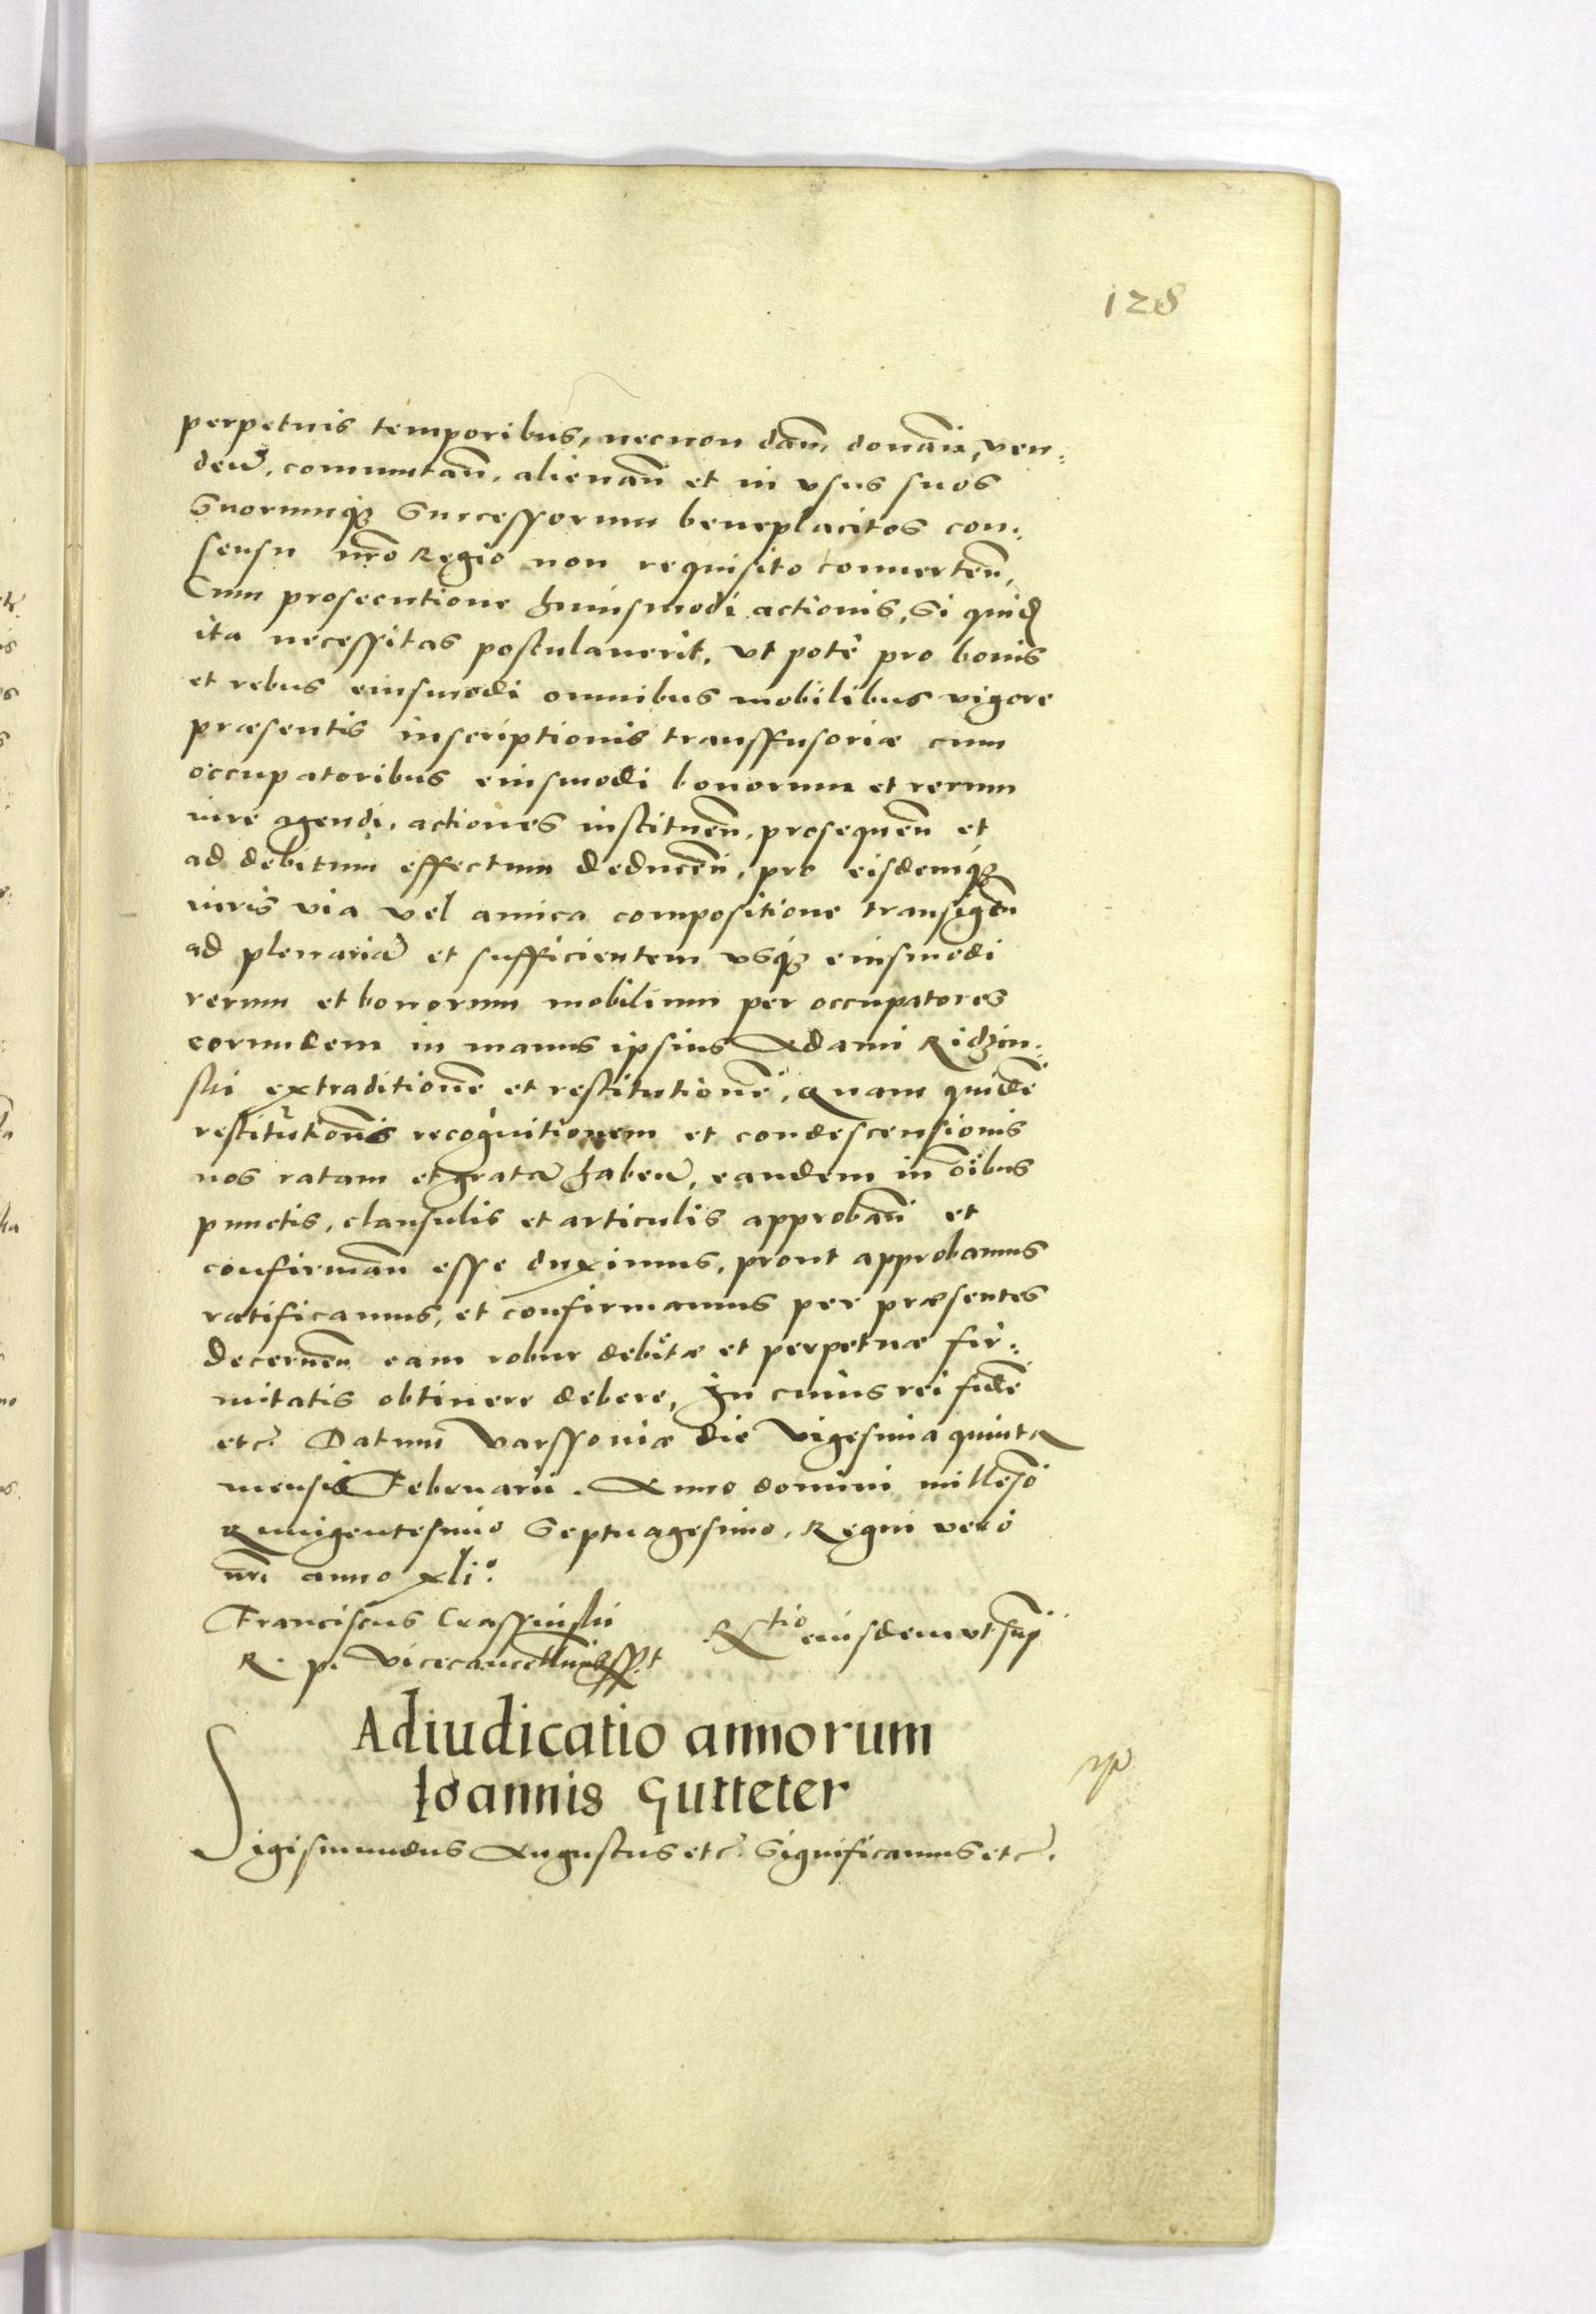 128
perpetuis temporibus, necnon dan̄, donan̄, ven:
den̄, comutan̄, alienan̄ et in vsus suos
Suorumq3 Successorum beneplacitos con:
sensu nr̄o Regio non requisito conuerten̄,
Cum prosecutione huiusmodi actionis, Si quid
ita necessitas postulauerit, vt potè pro bonis
et rebus eiusmodi omnibus mobilibus vigore
præsentis inscriptionis transfusoriæ cum
occupatoribus eiusmodi bonorum et rerum
iure agendi, actiones instituen̄, prosequen̄ et
ad debitum effectum deducen̄, pro eisdemq3
iuris via vel amica compositione transigen̄
ad plenariā et sufficientem vsq3 eiusmodi
rerum et bonorum mobilium per occupatores
eorundem in manus ipsius Adami Ridzin:
ski extraditionē et restitutionē, Quam quidē
restitutionis recognitionem et condescensionis
nos ratam et gratā haben̄, eandem in oībus
punctis, clausulis et articulis approban̄ et
confirman̄ esse duximus, prout approbamus
ratificamus, et confirmamus per præsentes
decernen̄ eam robur debitæ et perpetuæ fir:
mitatis obtinere debere, In cuius rei fidē
etc. Datum Varssoviæ die Vigesima quinta
mensis Februarii. Anno domini millesō
Quingentesimo Septuagesimo, Regni verò
nr̄i anno xli°.
Franciscus Crassinski
R. p. Vicecancellarius sspt
Rtio eiusdem vt supͣ
Adiudicatio annorum
Ioannis Gutteter
Sigismundus Augustus etc. Significamus etc.